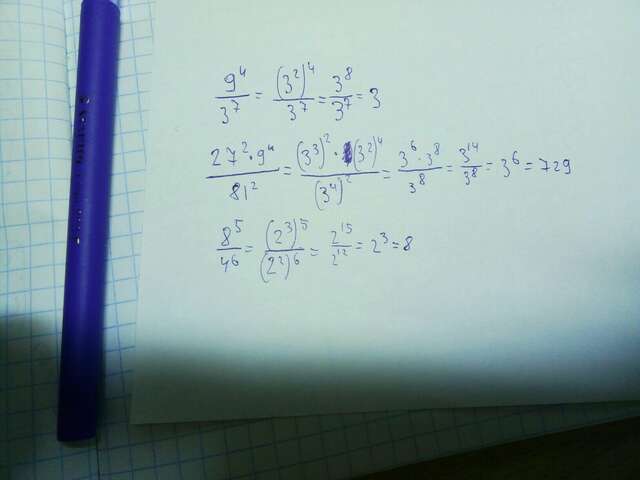 9⁴/3⁷ = (3²)⁴/3⁷ = 3⁸/3⁷ = 3
27²·9⁴/81² = (3³)²·(3²)⁴/(3⁴)² = 3⁶·3⁸/3⁸ = 3¹⁴/3⁸ = 3⁶ = 729
8⁵/4⁶ = (2³)⁵/(2²)⁶ = 2¹⁵/2¹² = 2³ = 8